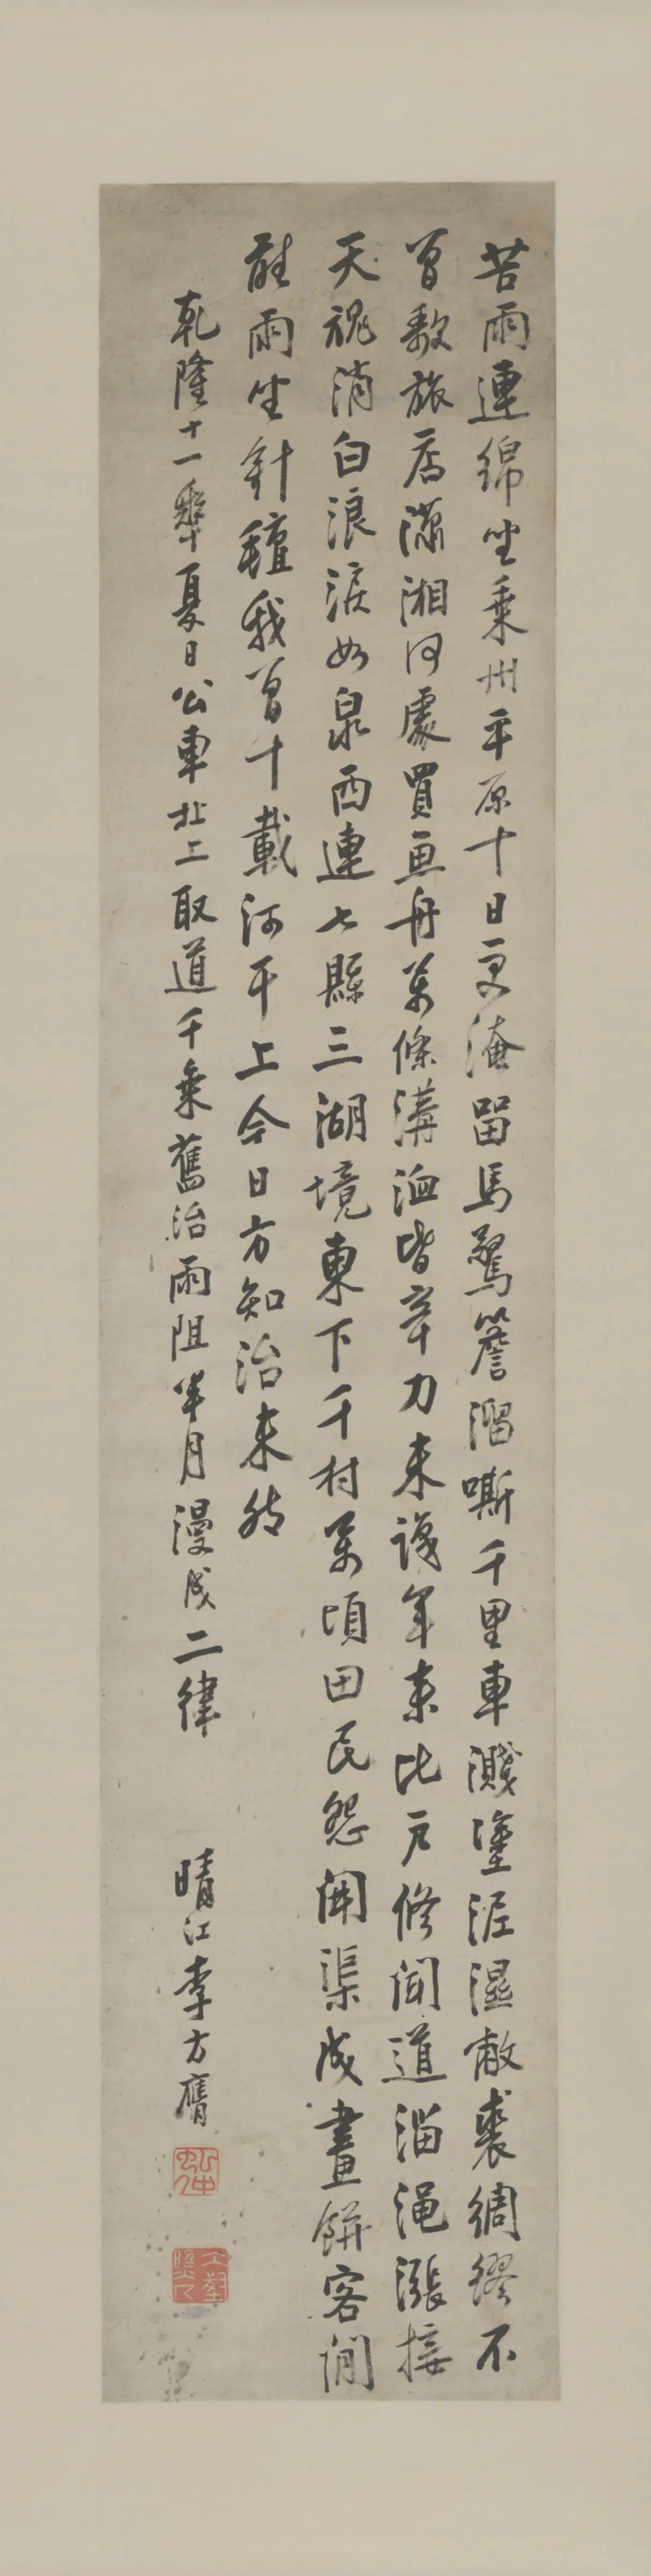 苦雨連綿坐乗州平原十日更淹留馬驚簷溜嘶千里車濺塗泥濕敝裘綢繆不
曾歌旅店瀟湘何處買魚舟萬條溝洫皆辛力未議年来比户修聞道淄澠漲接
天魂消白浪淚如泉西連七縣三湖境東下千村萬頃田民怨開渠成畫餅客閒
聽雨坐針氊我曽十載河干上今日方知治未然
乾隆十一年夏日公車北上取道千乗舊治雨阻半月漫成二律
晴江李方膺